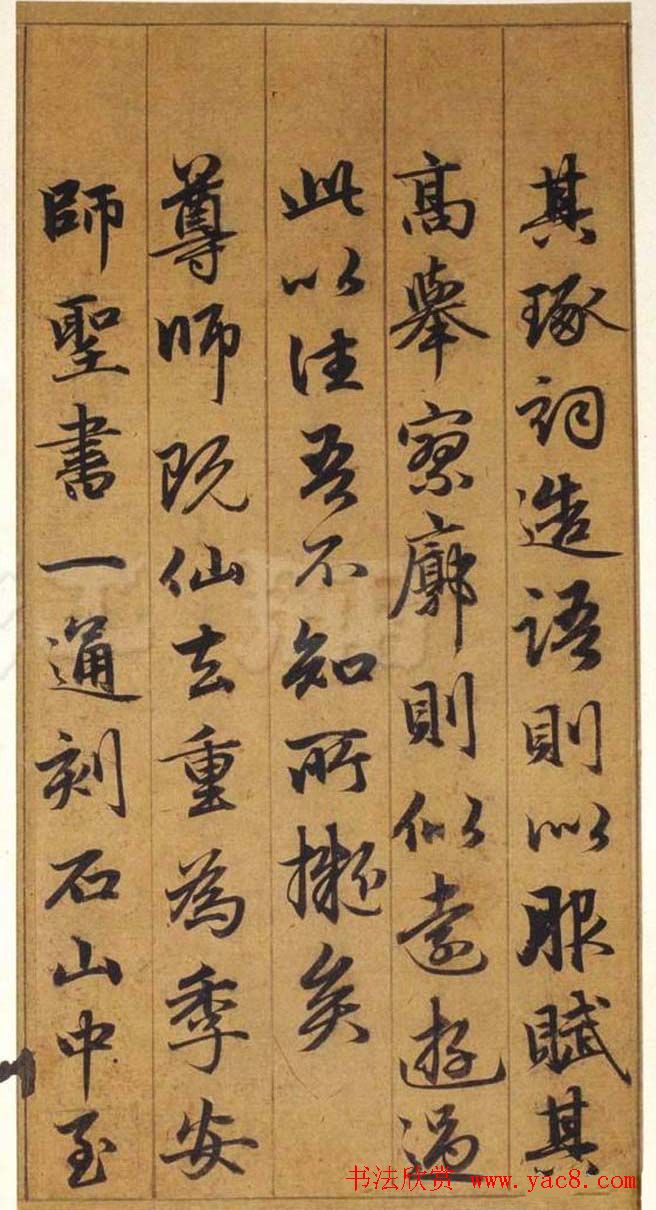 其琢詞造語則似服賦其
高舉寥廓則似遠遊過
此以往吾不知所擬矣
尊師既仙去重為季安
師聖書一通刻石山中至
书法欣赏 www.yac8.com